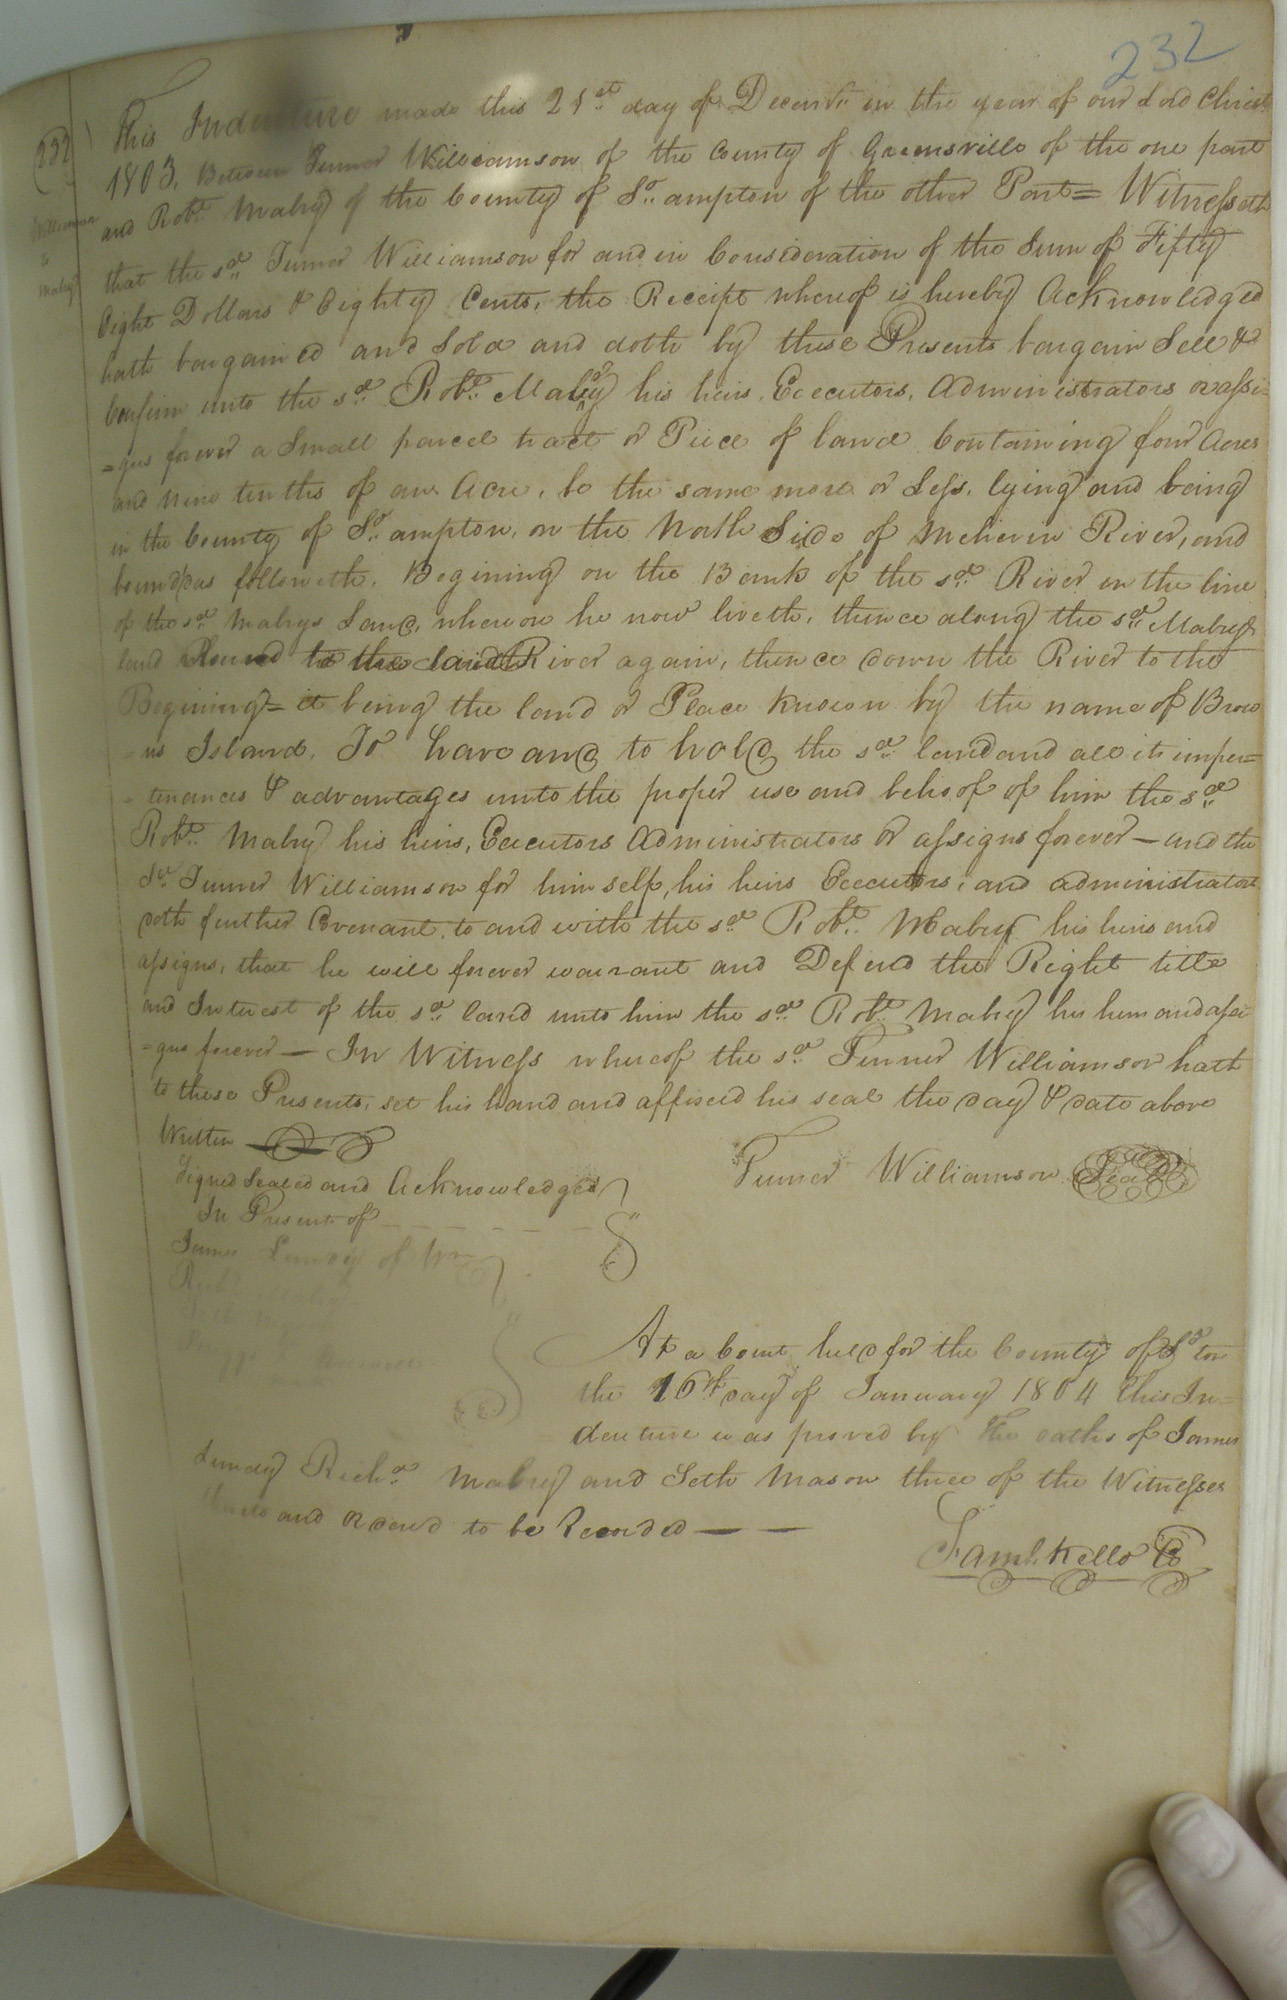 232
(232)
Williamson
to
Mabry
This Indenture made this 21st day of Decembr. in the year of our Lord Christ
1803, Between Turner Williamson of the County of Greensville of the one part
and Robt. Mabry of the County of So.ampton of the other Part = Witnesseth
that the sd. Turner Williamson for and in Consideration of the Sum of Fifty
Eight Dollars & Eighty Cents, the Receipt whereof is hereby Acknowledged
hath bargained and Sold and doth by these Presents bargain Sell &
Confirm unto the sd. Robt. Mabry his heirs, Executors, Administrators or assi-
=gns forever a Small parcel tract or Piece of land Containing four Acres
and nine tenths of an Acre, be the same more or Less, lying and being
in the County of So.ampton, on the North Side of Meherin River, and
bound as followeth. Begining on the Bank of the sd. River in the line
of the sd. Mabrys Land, whereon he now liveth, thence along the sd. Mabrys
land Round to the River again, thence down the River to the
Begining = it being the land or Place known by the name of Brow
ns Island. To have and to hold the sd. land and all its imper=
=tenances & advantages unto the proper use and behoof of him the sd.
Robt. Mabry his heirs, Executors Administrators or assigns forever — and the
sd. Turner Williamson for himself, his heirs Executors, and administrators
doth further Covenant to and with the sd. Robt. Mabry his heirs and
assigns, that he will forever warrant and Defend the Right title
and Interest of the sd. land unto him the sd. Robt. Mabry his heirs and assi
=gns forever — In Witness whereof the sd. Turner Williamson hath
to these Presents, set his hand and affixed his seal the day & date above
Written
Turner Williamson Seal
Signed Sealed and Acknowledged
In Present of
James Lundy of Wm
At a Court held for the County of So.ton
the 16th day of January 1804 This In=
denture was proved by the oaths of James
Lundy Richd. Mabry and Seth Mason three of the Witnesses
thereto and ordered to be Recorded — —
Saml. Kello Cl